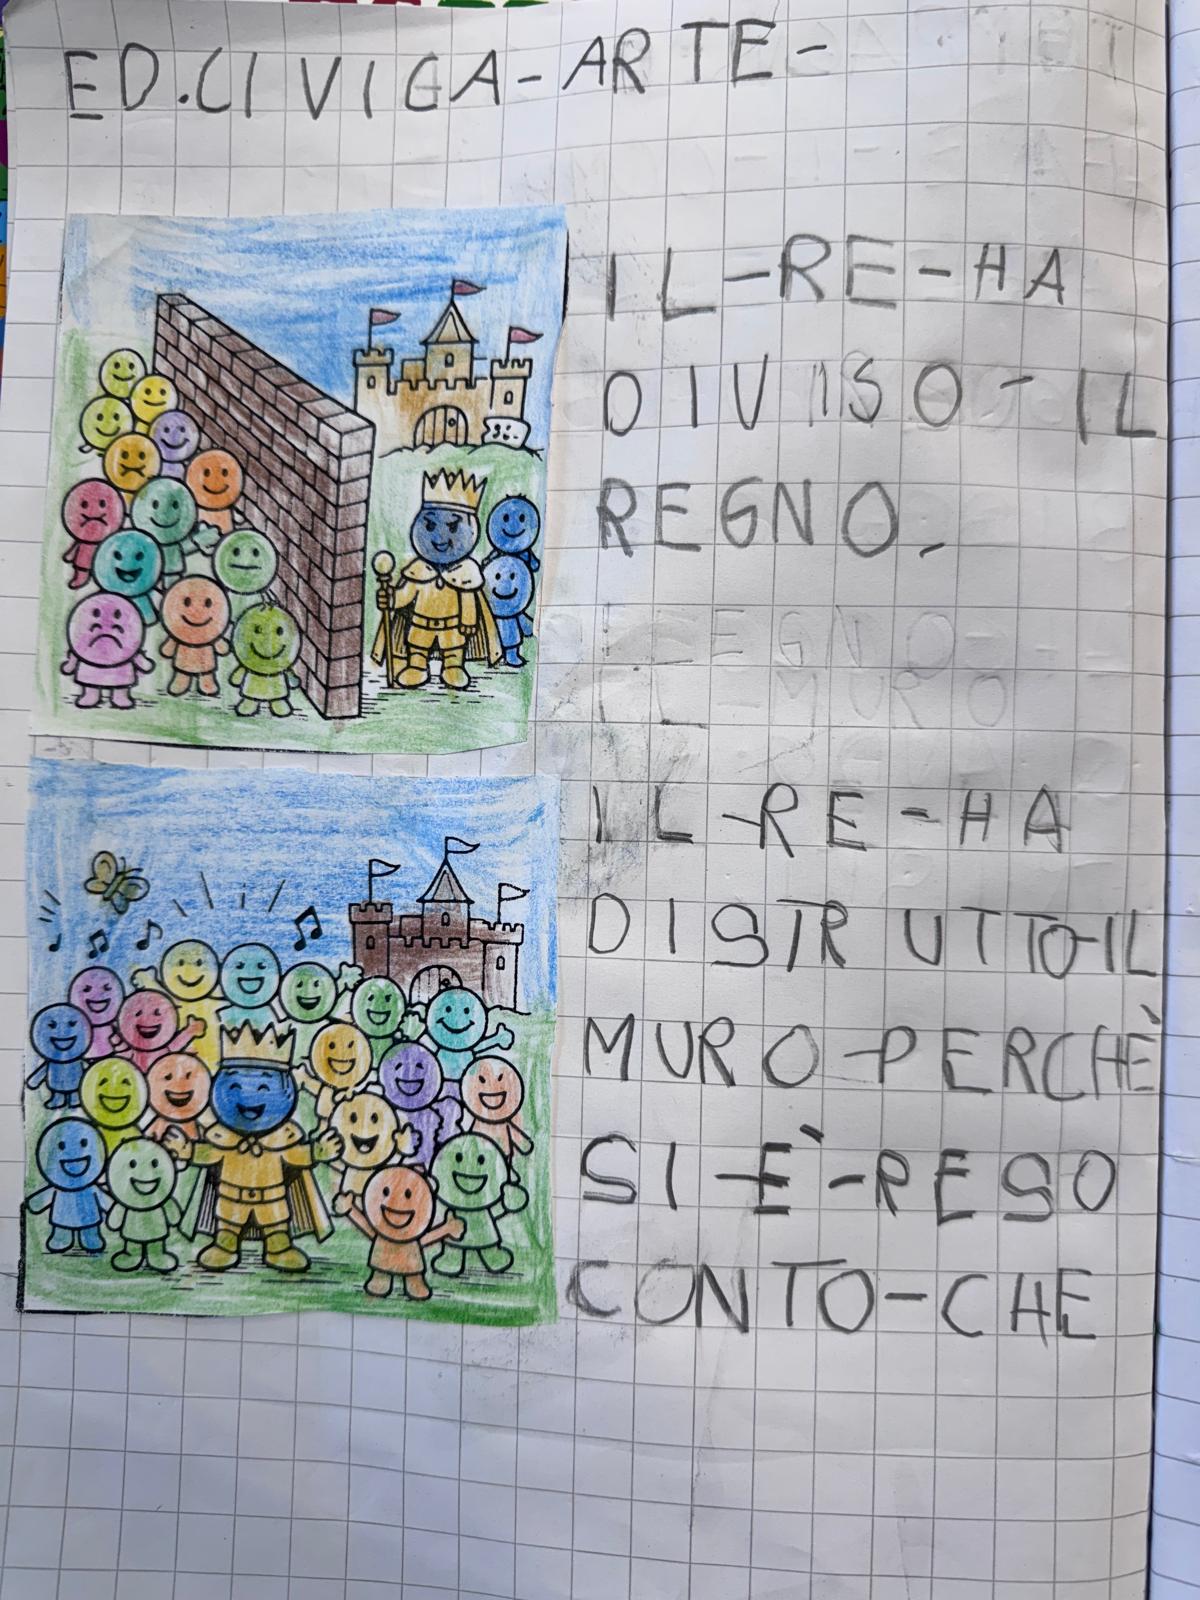 ED.CIVICA-ARTE-
IL-RE-HA
DIVISO-IL
REGNO.
REGNO
IL-MURO
IL-RE-HA
DISTRUTTO-IL
MURO-PERCHÈ
SI-È-RESO
CONTO-CHE